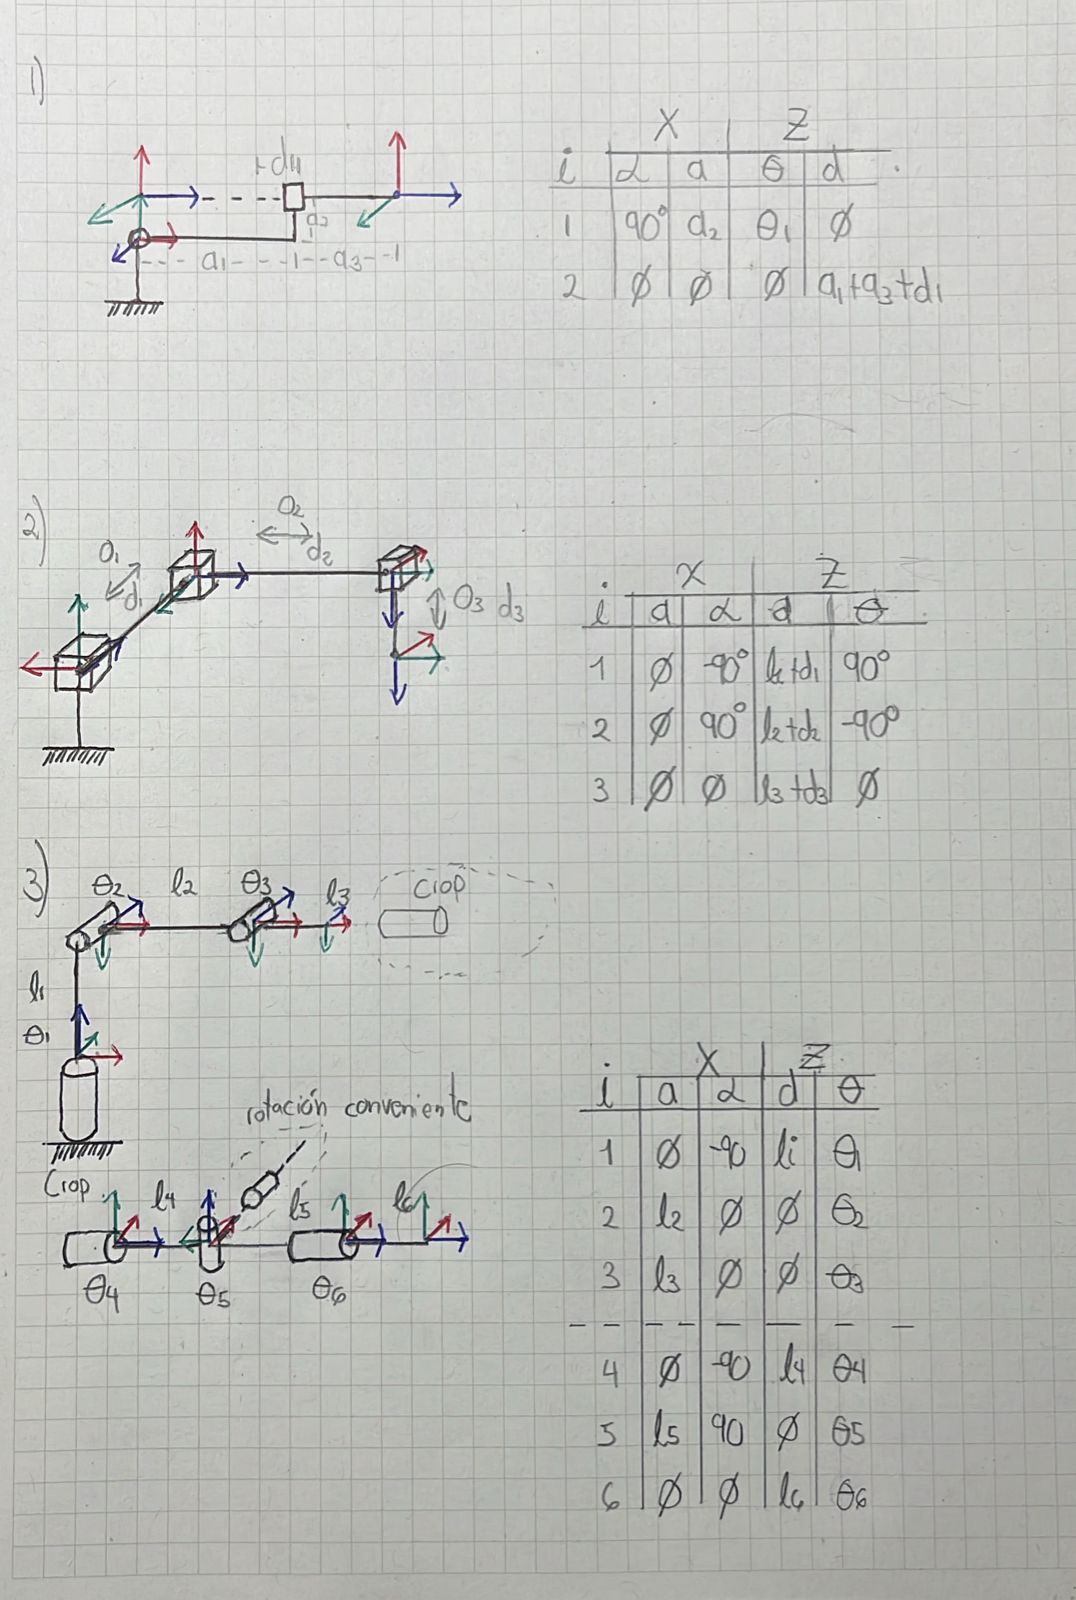 1)
X | Z
i | α | a | θ | d
1 | 90° | a₂ | θ₁ | ∅
2 | ∅ | ∅ | ∅ | a₁+a₃+d₁
a₂
a₁ a₃
2)
d₁
O₂
d₂
O₃ d₃
X | Z
i | a | α | d | θ
1 | ∅ | -90° | l₁+d₁ | 90°
2 | ∅ | 90° | l₂+d₂ | -90°
3 | ∅ | ∅ | l₃+d₃ | ∅
3)
θ₂ l₂ θ₃ l₃ Crop
l₁
θ₁
rotación conveniente
Crop l₄ l₅ l₆
θ₄ θ₅ θ₆
X | Z
i | a | α | d | θ
1 | ∅ | -90 | li | θ₁
2 | l₂ | ∅ | ∅ | θ₂
3 | l₃ | ∅ | ∅ | θ₃
4 | ∅ | -90 | l₄ | θ₄
5 | l₅ | 90 | ∅ | θ₅
6 | ∅ | ∅ | l₆ | θ₆